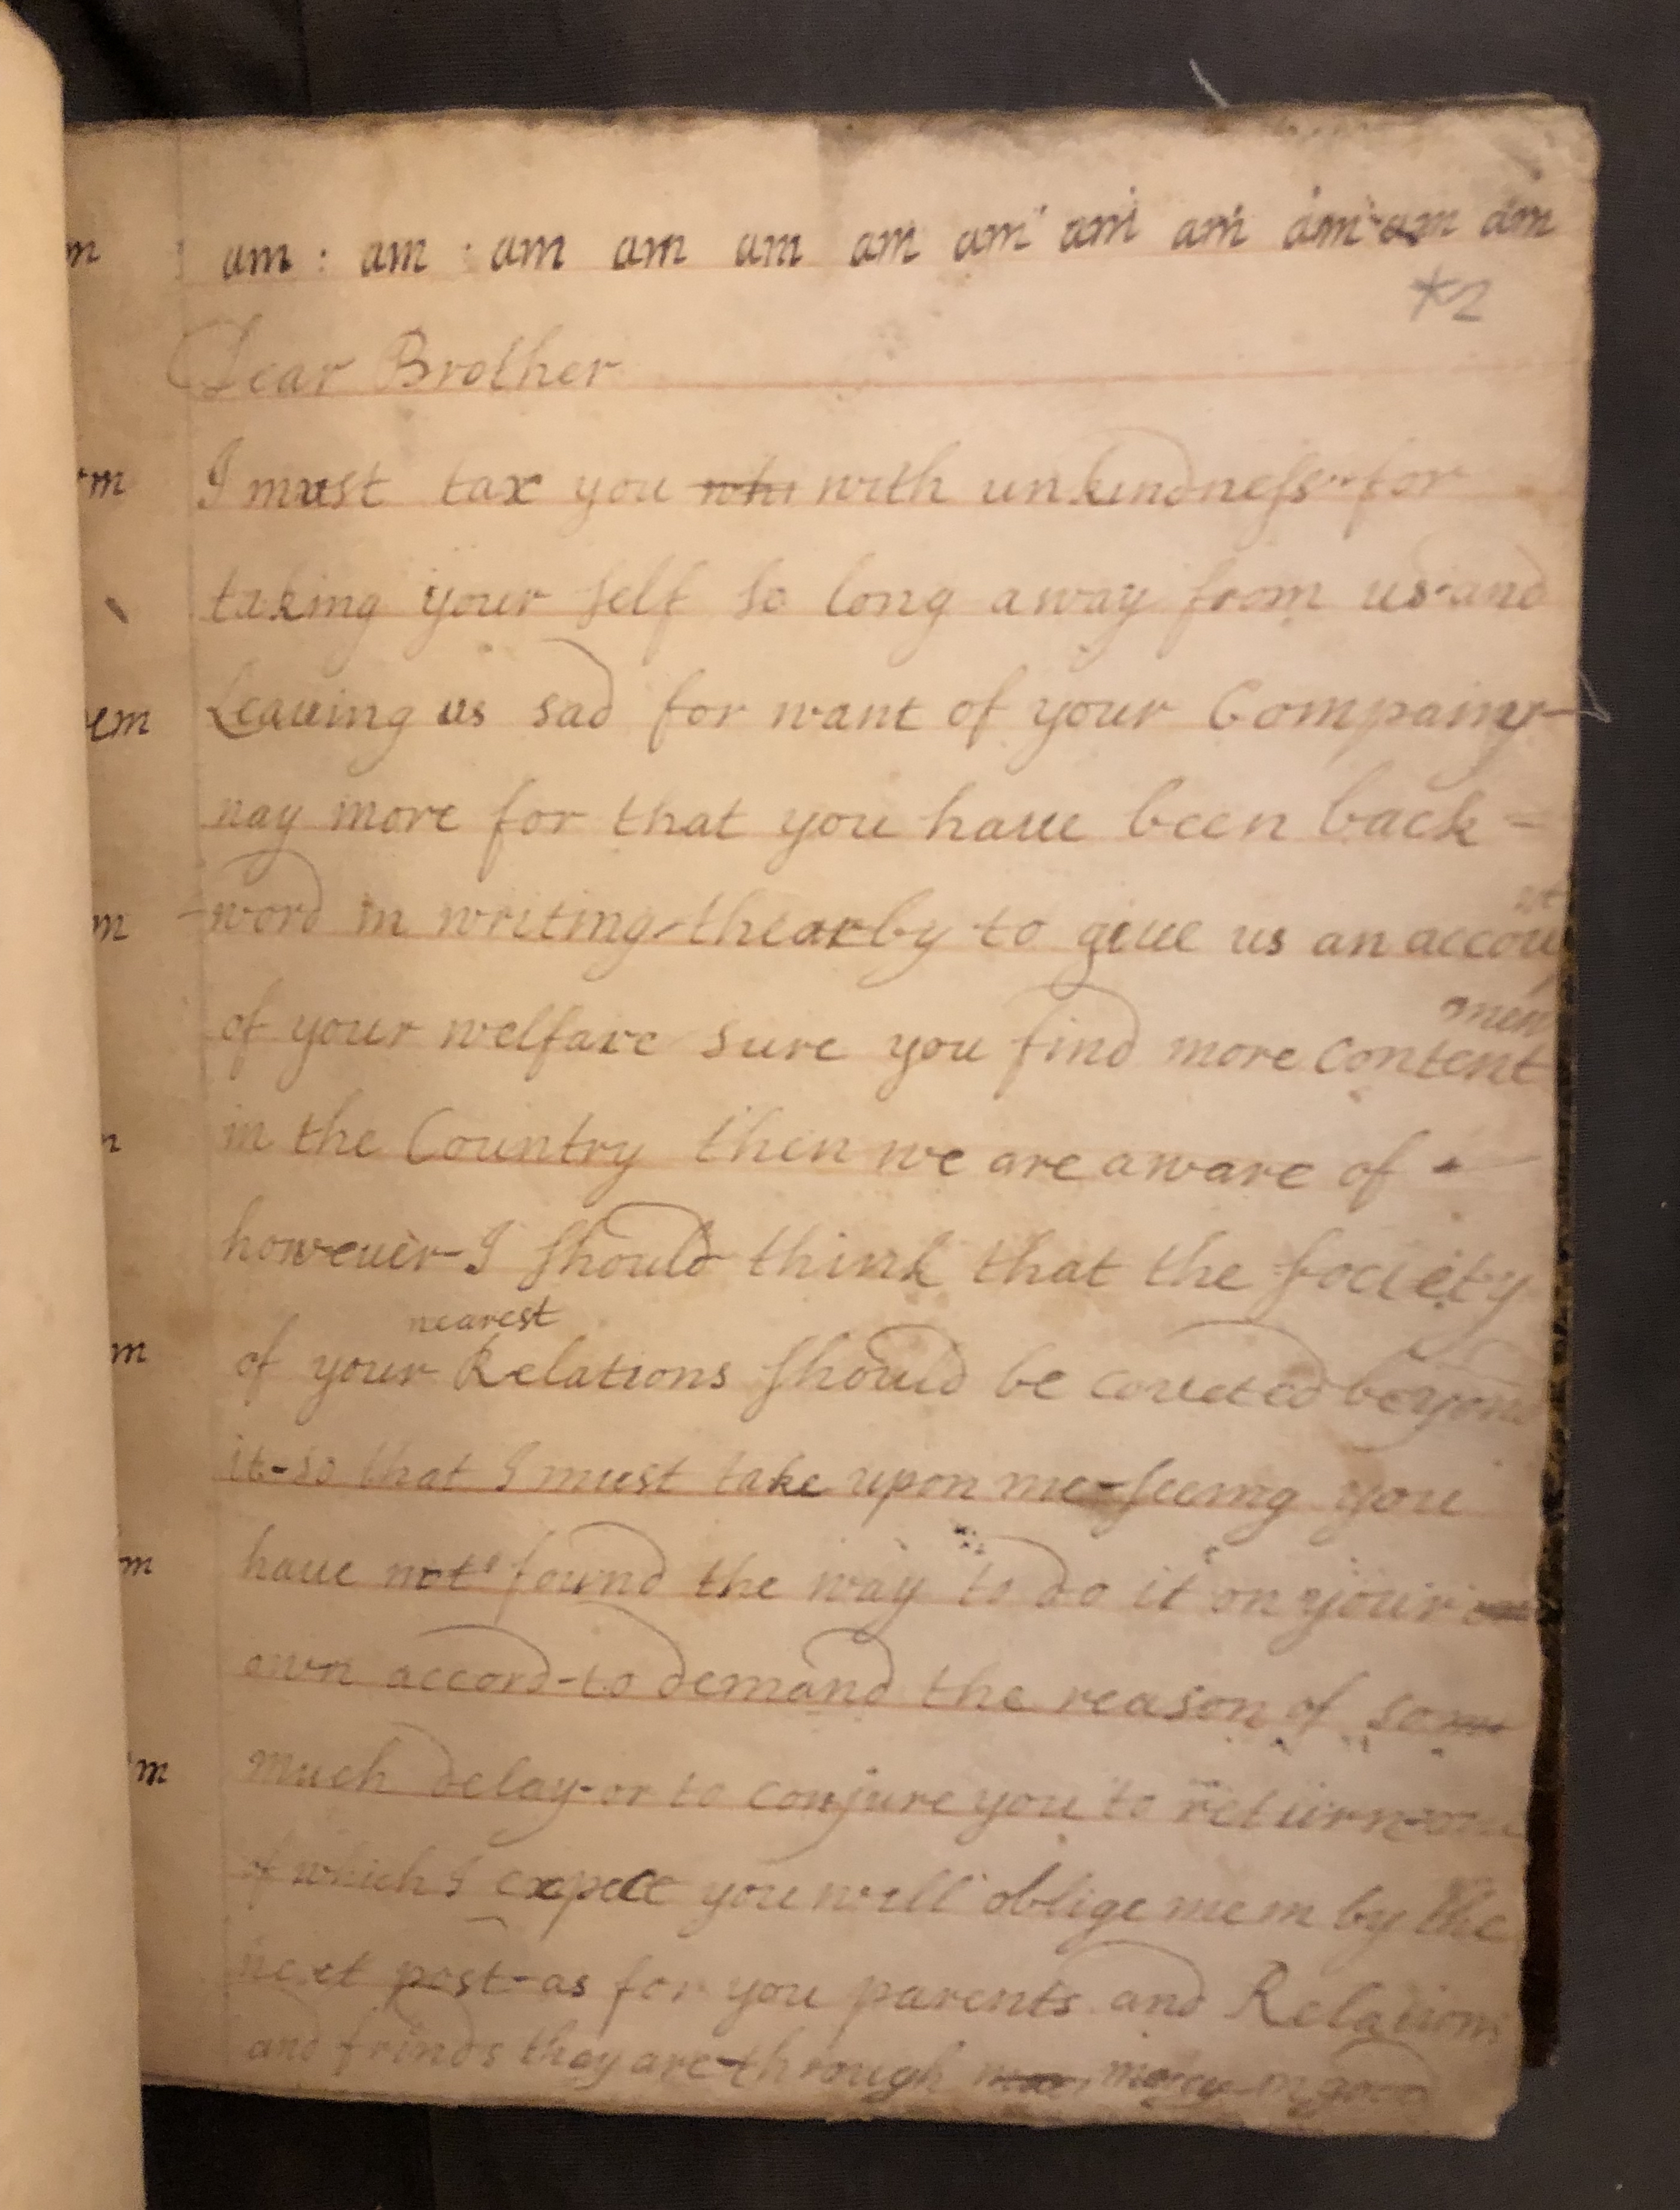 am : am : am am am am am am am am am am
*2
Dear Brother
I must tax you whi with unkindness for
taking your self so long away from us and
Leaueing us sad for want of your Compainy-
nay more for that you haue been back =
word in writing-thearby to giue us an accou
nt
of your welfare sure you find more content
men
in the Country then we are aware of -
howeuer-I should think that the society
nearest
of your Relations should be coueted beyond
it-so that I must take upon me-seeing you
haue not found the way to do it on your
own accord-to demand the reason of so
much delay-or to conjure you to return-one
of which I expect you will oblige me in by the
next post-as for you parents and Relations
and frinds they are-through mercy in good
m
m
em
m
m
m
m